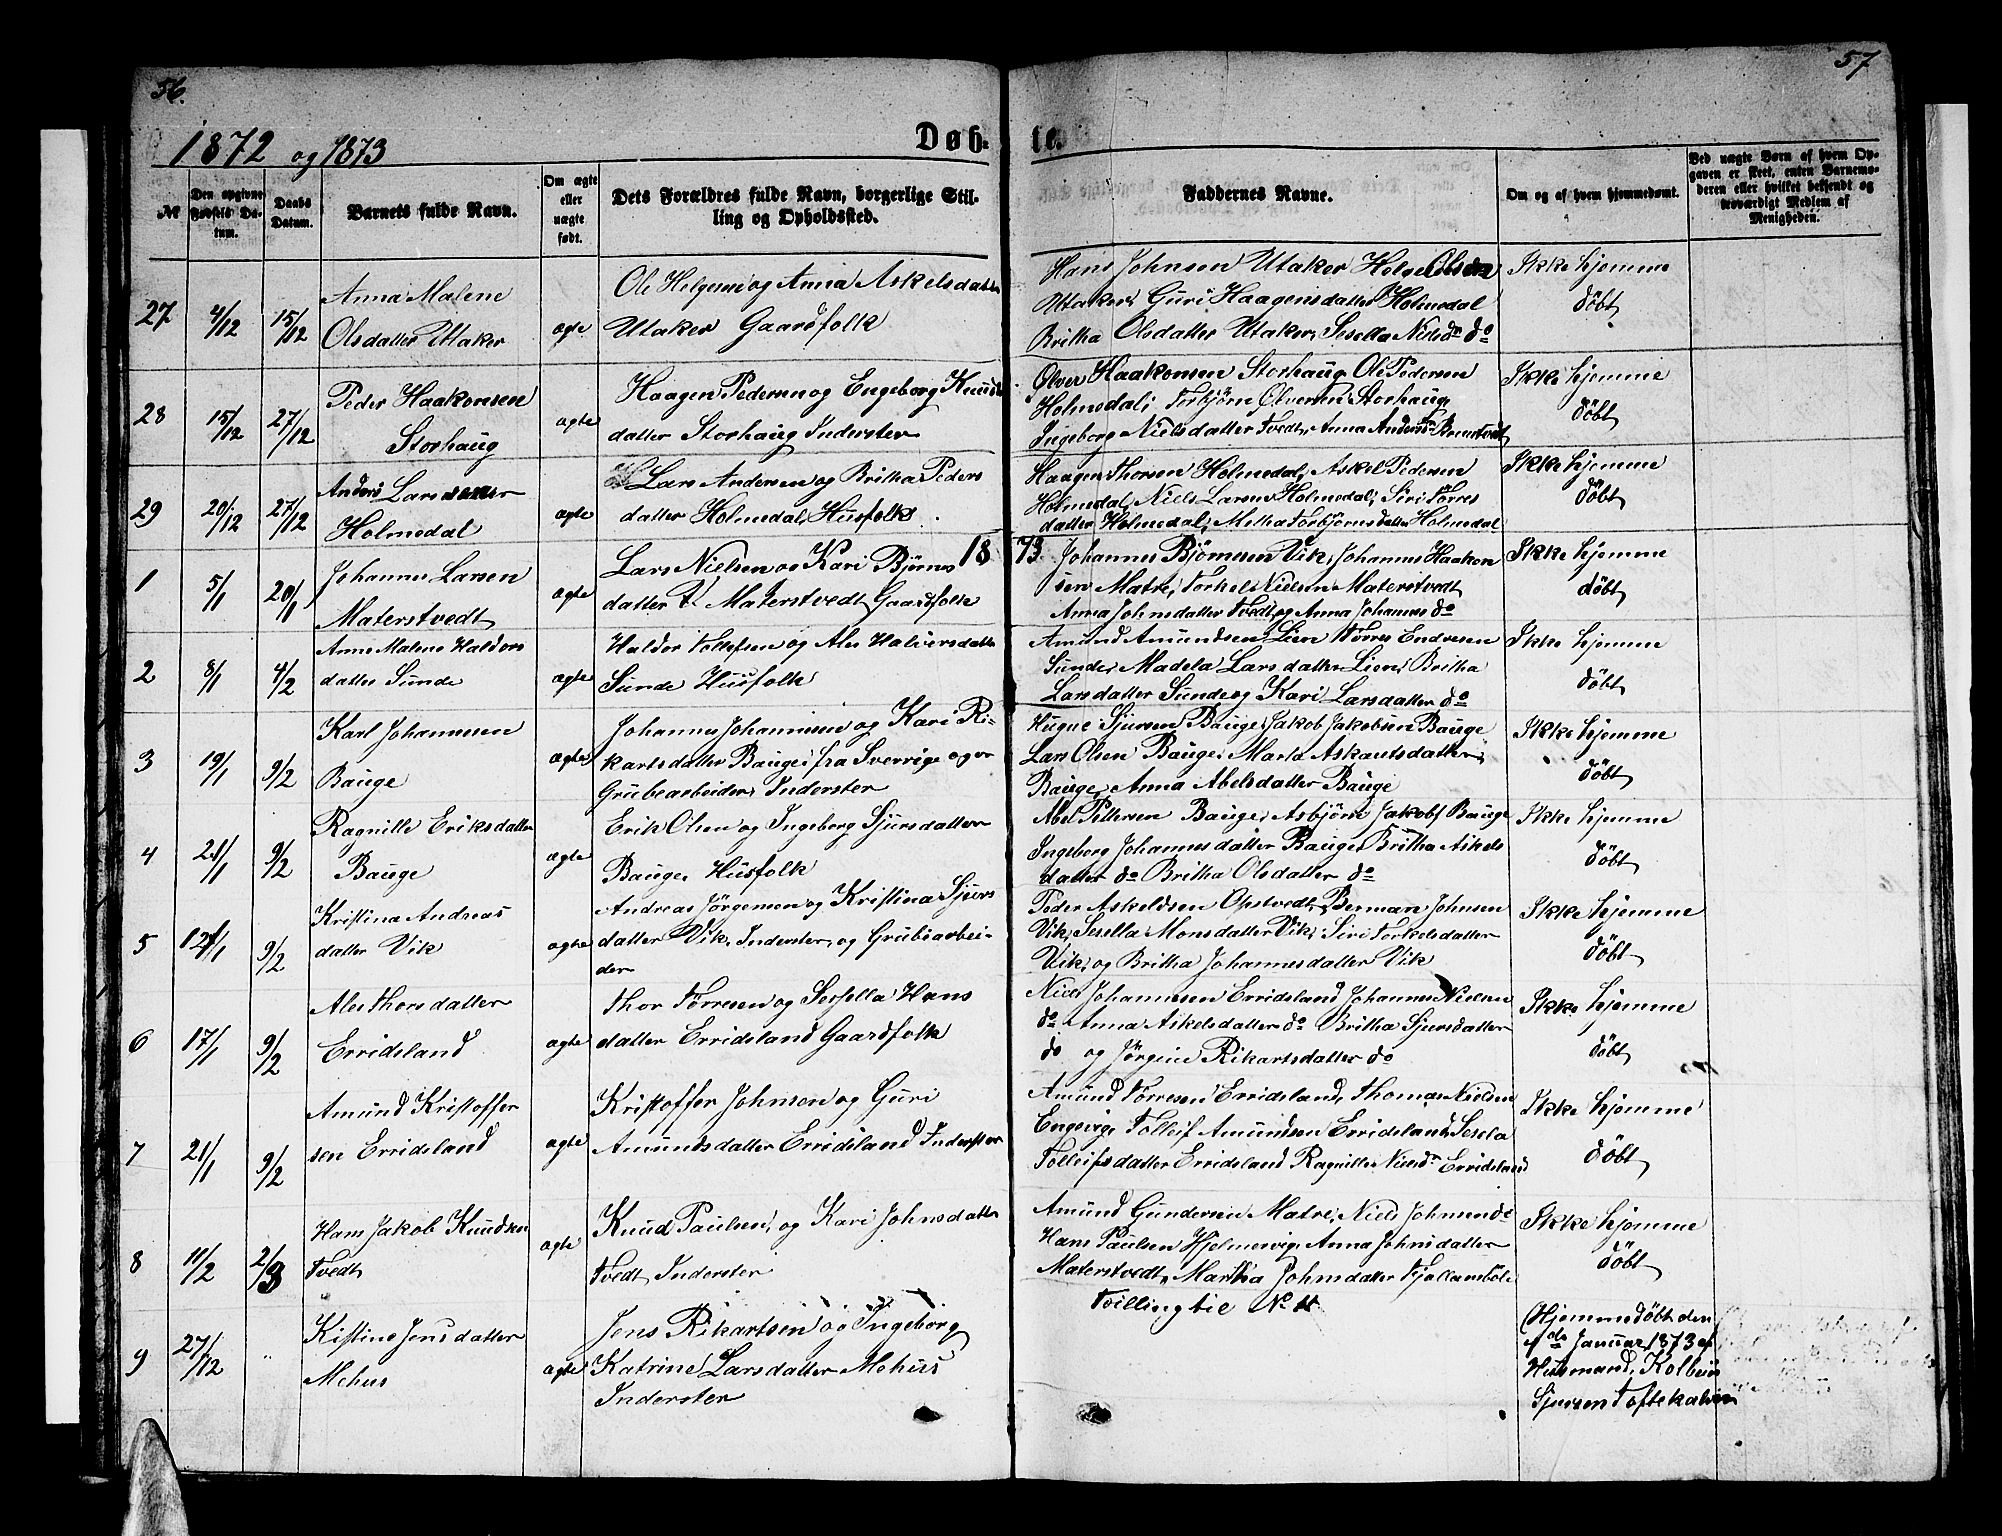 56.
57
1872 og 1873
Døb-
te.
№
Den opgivne Fødsels Datum.
Daabs Datum.
Barnets fulde Navn.
Om ægte eller uægte født.
Dets Forældres fulde Navn, borgerlige Stilling og Opholdssted.
Faddernes Navne.
Om og af hvem hjemmedømt.
Ved uægte Børn af hvem Opgaven er skett, enten Barnemoderen eller hvilket bekjendt og troværdigt Medlem af Menigheden.
27
4/12
15/12
Anna Malene
Olsdatter Utaker
ægte
Ole Helgesen og Anna Askelsdatter
Utaker Gaardfolk
Hans Johnsen Utaker Helge Olsen
Uttaker, Guri Haagensdatter Holmedal
Britha Olsdatter Utaker, Sesella Nielsdr do
Ikke hjemme
döbt
28
15/12
27/12
Peder Haakonsen
Storhaug
ægte
Haagen Pedersen og Engeborg Knuds
datter Storhaug Inderster
Ølver Haakonsen Storhaug Ole Pedersen
Holmedal; Torbjörn Ølversen Storhaug
Ingeborg Nielsdatter Tvedt, Anna Andersdr
Ikke hjemme
döbt
29
20/12
27/12
Anders Larsen
Holmedal
ægte
Lars Andersen og Britha Peders
datter Holmedal, Husfolk
Haagen Thorsen Holmedal, Askel Pedersen
Holmedal, Niels Larsen Holmedal, Siri Törres
datter Holmedal, Metha Torbjörnsdatter Holmedal
Ikke hjemme
döbt
1873
1
5/1
20/1
Johannes Larsen
Materstvedt
ægte
Lars Nielsen og Kari Björns
datter Materstvedt Gaardfolk
Johannes Björnesen Vik, Johannes Haakon
sen Matre, Torkel Nielsen Materstvedt
Anna Johnsdatter Tvedt og Anna Johannes do
Ikke hjemme
döbt
2
8/1
4/2
Anne Malene Haldors
datter Sunde
ægte
Haldor Tollefsen og Ales Halversdatter
Sunde Husfolk
Amund Amundsen Lien Törres Endresen
Sunde, Madela Larsdatter Lien, Britha
Larsdatter Sunde og Kari Larsdatter do
Ikke hjemme
döbt
3
19/1
9/2
Karl Johannesen
Bauge
ægte
Johannes Johannesen og Kari Ri-
kartsdatter Bauge, fra Sverrige og er
Grubearbeider, Inderster
Sjursen Bauge, Jakob Jakobsen Bauge
Lars Olsen Bauge, Marta Askautsdatter
Bauge, Anna Abelsdatter Bauge
Ikke hjemme
döbt
4
21/1
9/2
Ragnille Eriksdatter
Bauge
ægte
Erik Olsen og Ingeborg Sjursdatter
Bauge, Husfolk
Abel Pettersen Bauge, Asbjörn Jakobs Bauge
Ingeborg Johannesdatter Bauge, Britha Askels
datter do Britha Olsdatter do
Ikke hjemme
döbt
5
9/2
Kristina Andreas
datter Vik
ægte
Andreas Jörgensen og Kristina Sjurs
datter Vik, Inderster, og Grubearbei-
der
Peder Askeldsen Opstvedt, Berman Johnsen
Vik, Sesella Monsdatter Vik, Siri Torkelsdatter
Vik, og Britha Johannesdatter Vik
Ikke hjemme
döbt
6
17/1
9/2
Ales Thorsdatter
Erridsland
ægte
Thor Törresen og Sersella Hans
datter Erridsland Gaardfolk
Niels Johannesen Erridsland Johannes Nielsen
do Anna Askelsdatter do Britha Sjursdatter
do og Jörgine Rikartsdatter do
Ikke hjemme
döbt
7
21/1
9/2
Amund Kristoffer
sen Erridsland
ægte
Kristoffer Johnsen og Guri
Amundsdatter Erridsland Inderster
Amund Törresen Erridsland, Thomas Nielsen
Engevig, Tolleif Amundsen Erridsland, Sesela
Tolleifsdatter Erridsland Ragnille Nielsdr Erridsland
Ikke hjemme
döbt
8
11/2
2/3
Hans Jakob Knudsen
Tvedt
ægte
Knud Paulsen, og Kari Johnsdatter
Tvedt, Inderster
Amund Gundersen Matre, Niels Johnsen do
Hans Paulsen Hjelmervig, Anna Johnsdatter
Materstvedt, Martha Johnsdatter
Ikke hjemme
döbt
9
27/12
"
Kistine Jensdatter
Mehus
ægte
Jens Rikartsen og Ingeborg
Katrine Larsdatter Mehus
Inderster
Tvilling til No
Hjemmedöbt den
Januar 1873 af
Husmand, Kolbein
Sjursen Toftekalven